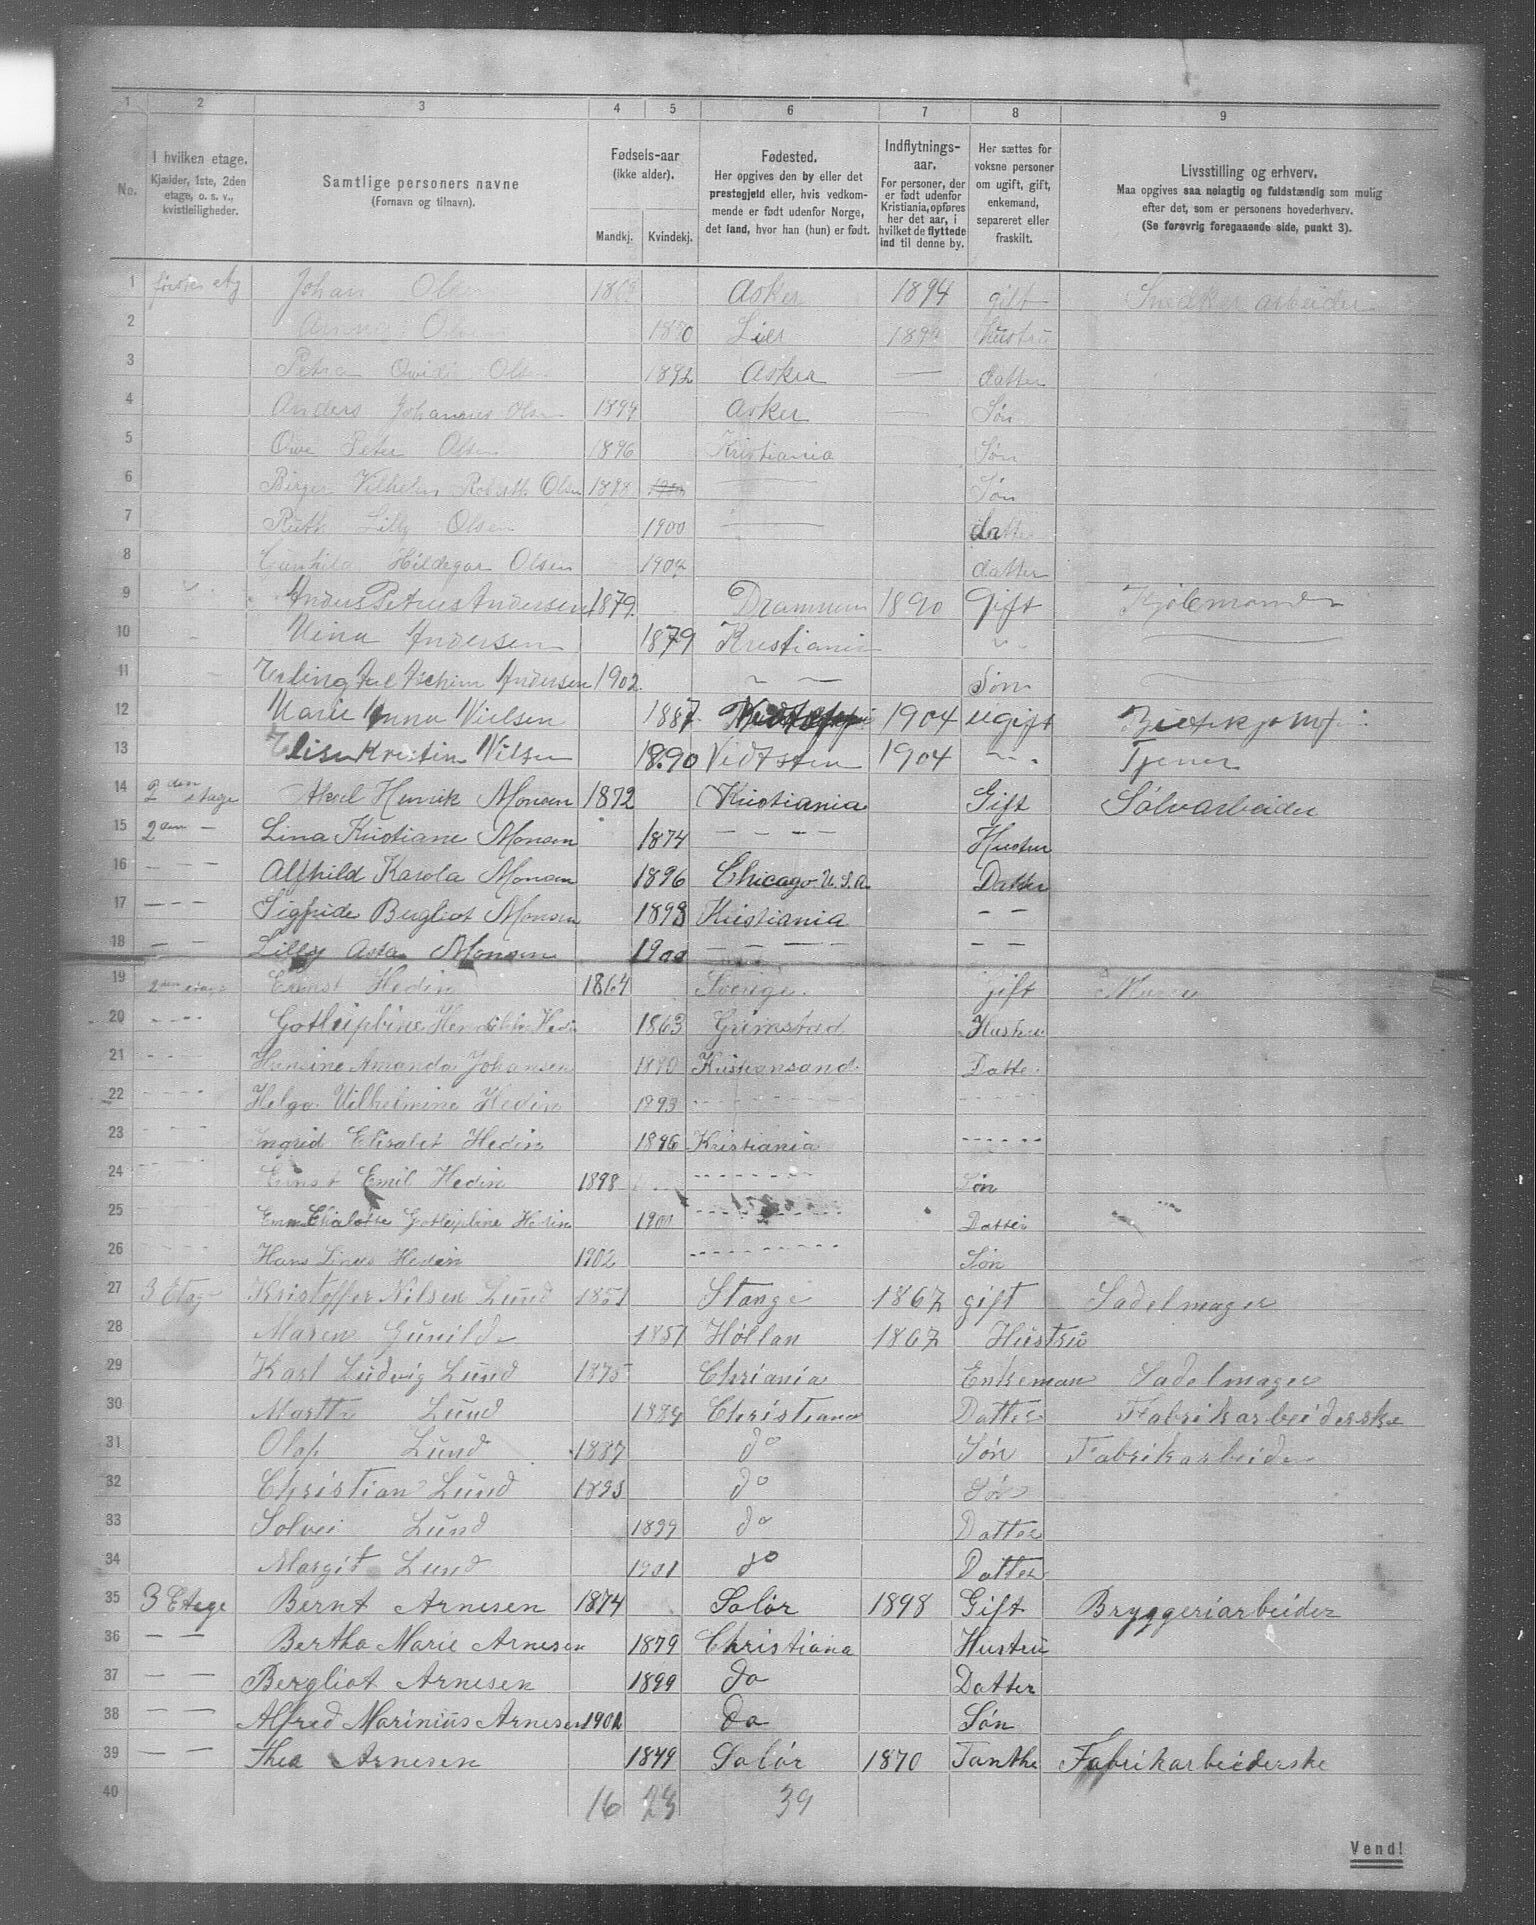 1 2 3 4 5 6 7 8 9
No.
I hvilken etage.
Kjælder, 1ste, 2den
etage, o. s. v.,
kvistleiligheder.
Samtlige personers navne
(Fornavn og tilnavn).
Fødsels-aar
(ikke alder).
Mandkj. Kvindekj.
Fødested.
Her opgives den by eller det
prestegjeld eller, hvis vedkom-
mende er født udenfor Norge,
det land, hvor han (hun) er født.
Indflytnings-
aar.
For personer, der
er født udenfor
Kristiania, opføres
her det aar, i
hvilket de flyttede
ind til denne by.
Her sættes for
voksne personer
om ugift, gift,
enkemand,
separeret eller
fraskilt.
Livsstilling og erhverv.
Maa opgives saa nøiagtig og fuldstændig som mulig
efter det, som er personens hovederhverv.
(Se forøvrig foregaaende side, punkt 3).
1 Johan Olsen Asker 1894 gift Snedker arbeider
2 Anna Olsen Lier 1894 Hustru
3 Petra Olsen 1892 Asker — datter
4 Anders Johannes Olsen 1894 Asker Søn
5 Ove Peter Olsen 1896 Kristiania Søn
6 Birger Vilhelm Olsen 1898 — Søn
7 Ruth Lilly Olsen 1900 — datter
8 Gunhild Hildegar Olsen datter
9 Anders Petrus Andersen 1879 Drammen 1890 Gift
10 Nina Andersen 1879 Kristiania
11 Erling Andersen 1902 — — Søn
12 Marie Anna Nielsen 1887 1904 ugift
13 Elise Kristin Nilsen 1890 1904 Tjener
14 2den etage Aksel Henrik Monsen 1872 Kristiania Gift Sølvarbeider
15 2den — Lina Kristiane Monsen 1874 - - - - Hustru
16 - - - Alfhild Karola Monsen 1896 Chicago U.S.A Datter
17 - - - Sigfride Bergliot Monsen 1898 Kristiania - -
18 - - Lilly Asta Monsen 1900 - - - - - -
19 2den etage Ernst Hedin 1864 Sverige Gift
20 - - - Hedin 1863 Grimstad Hustru
21 - - - Hansine Amanda Johansen Kristiansand Datter
22 - - - Helga Vilhelmine Hedin 1893 - - - - - -
23 - - - Ingrid Elisabet Hedin 1896 Kristiania - - - - -
24 Ernst Emil Hedin 1898 - - - - - - Søn
25 - - - Hedin - - - - - - Datter
26 - - - Hans Linus Hedin 1902 - - - - - - Søn
27 3 Etage Kristoffer Nilsen Lund 1851 Stange 1867 gift Sadelmager
28 Maren Gunilde 1851 Høllan 1867 Hustru
29 Karl Ludvig Lund 1875 Chriania Enkeman Sadelmager
30 Lund 1884 Christiana Datter Fabrikarbeiderske
31 Olaf Lund 1887 do Søn Fabrikarbeider
32 Christian Lund 1893 do Søn
33 Solvei Lund 1899 do Datter
34 Margit Lund 1901 do Datter
35 3 Etage Bernt Arnesen 1874 Solør 1898 Gift Bryggeriarbeider
36 — — Bertha Marie Arnesen 1879 Christiana Hustru
37 — — Bergliot Arnesen 1899 do Datter
38 — — Alfred Marinius Arnesen do Søn
39 — — Thea Arnesen 1849 Solør 1870 Tanthe Fabrikarbeiderske
40 16 23 39
Vend!